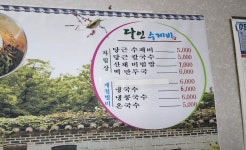 다인 수제비
차림상
당근 수제비 5,000
당근 칼국수 5,000
산채 비빔밥 7,000
떡만두국 6,000
계절별미
냉국수 6,000
냉콩국수 6,000
온국수 5,000